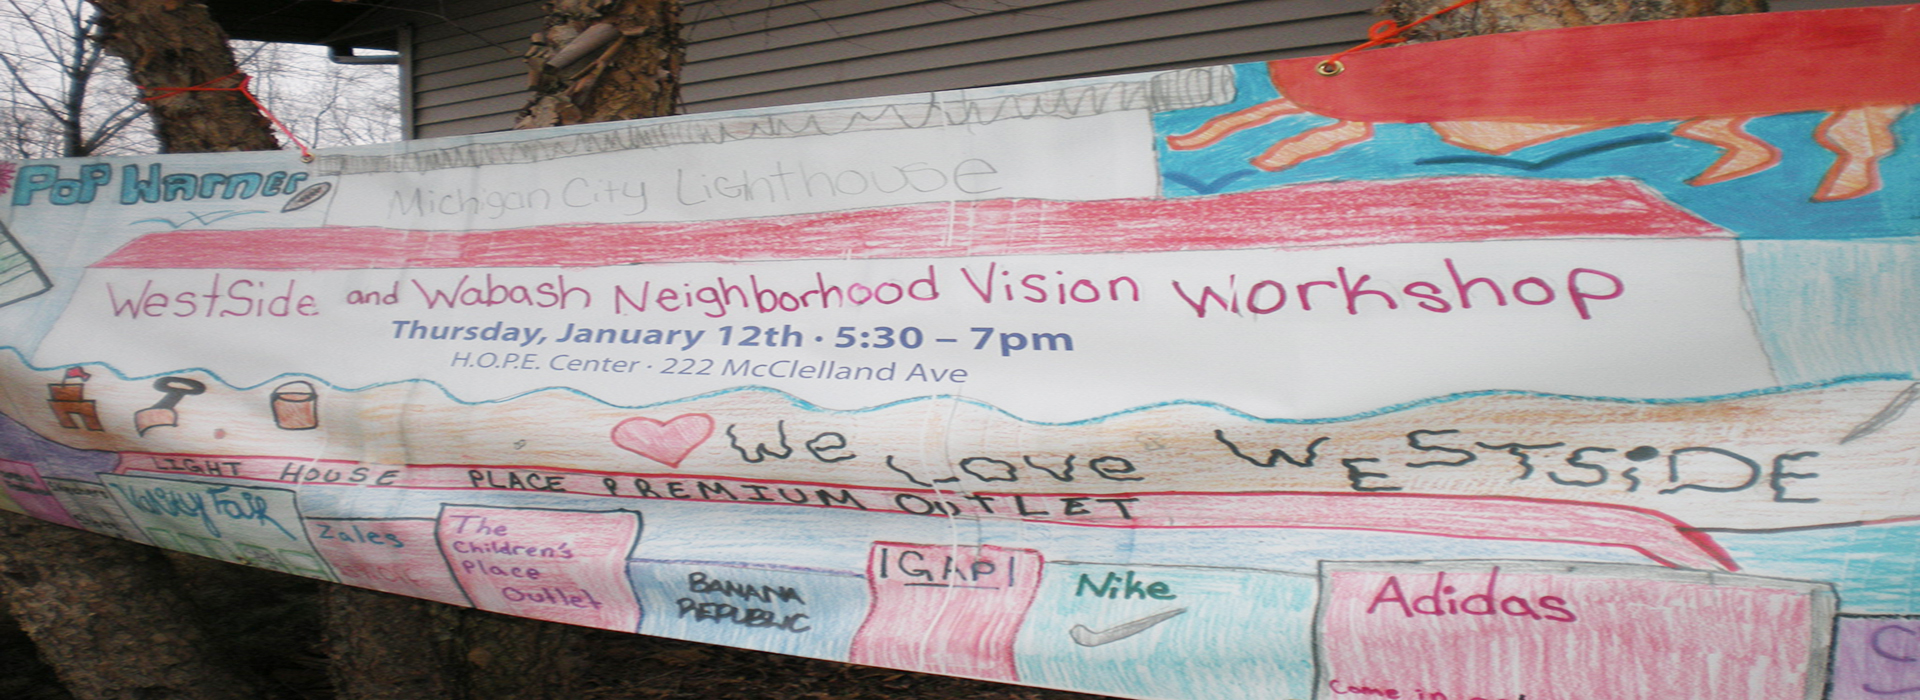 PoP Warner
Michigan City Lighthouse
WestSide and Wabash Neighborhood Vision Workshop
Thursday, January 12th · 5:30 – 7pm
H.O.P.E. Center · 222 McClelland Ave
We Love WESTSiDE
LIGHT HOUSE PLACE PREMIUM OUTLET
Fair
Zales
The
Children's
Place
Outlet
BANANA
REPUBLIC
GAP
Nike
Adidas
C
Come in